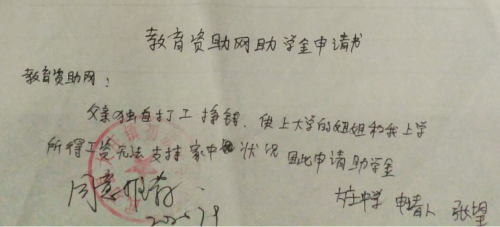 教育资助网助学金申请书
教育资助网:
父亲独自打工挣钱,供上大学的姐姐和我上学
所得工资无法支持家中状况因此申请助学金
同意推荐.
大庄中学 申请人 张望